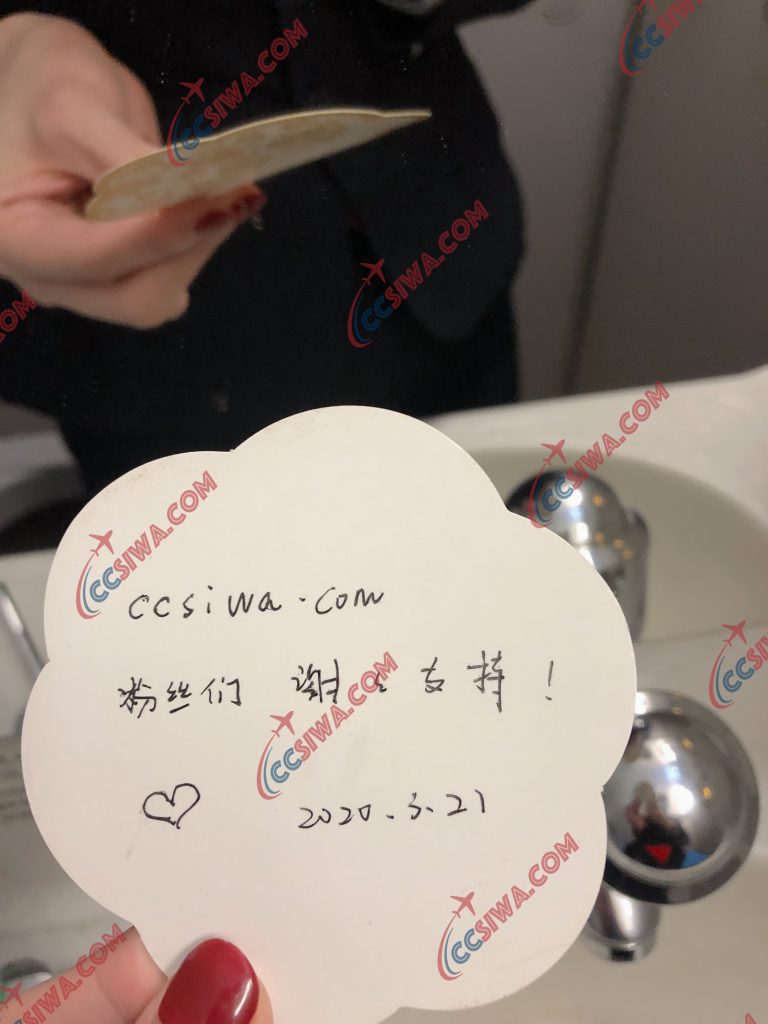 CCSIWA.COM
CCSIWA.COM
CCSIWA.COM
CCSIWA.COM
CCSIWA.COM
CCSIWA.COM
ccsiwa.com
粉丝们 谢谢支持!
CCSIWA.COM
CCSIWA.COM
♡ 2020.3.21
CCSIWA.COM
CCSIWA.COM